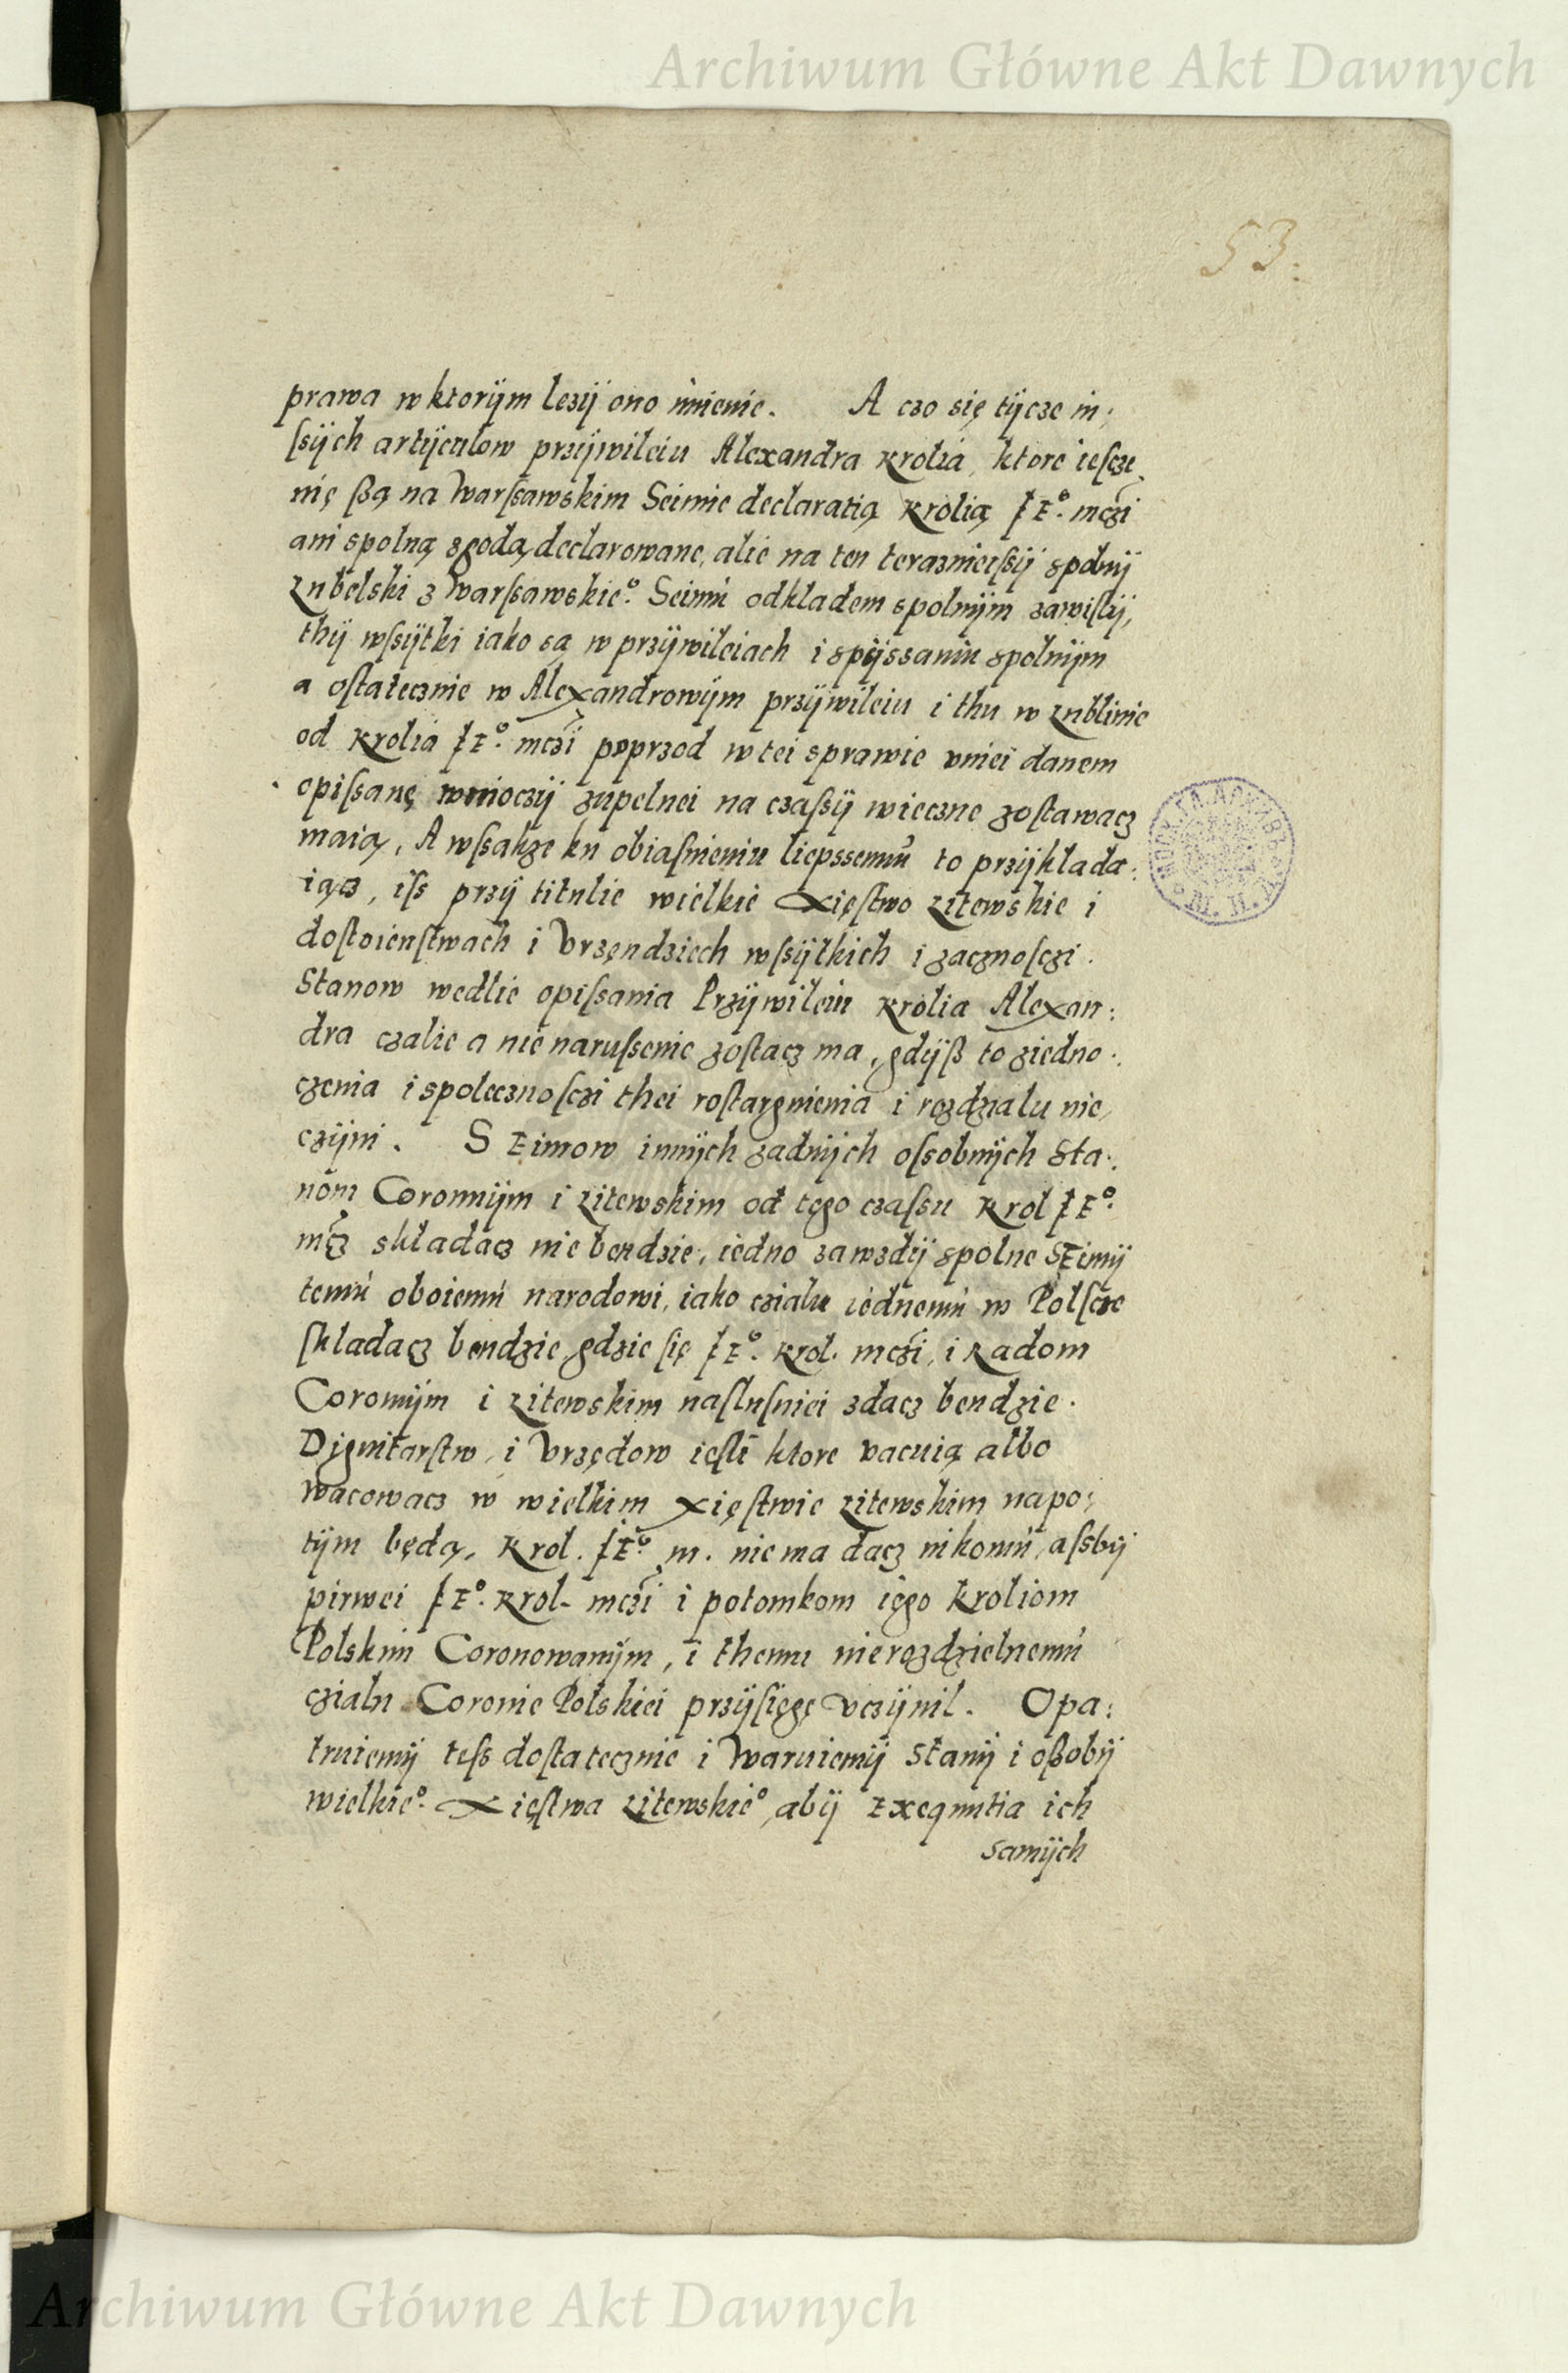 Archiwum Główne Akt Dawnych
53.
prawa w ktorÿm lezÿ ono imienie. A czo się tÿcze in:
ſsÿch artÿculow przÿwileiu Alexandra Krolia, ktore ieſcze
nię ßą na Warſsawskim Seimie declaratią Krolią JE°. mczi
ani spolną zgodą declarowane, alie na ten teraznieiſsÿ spolnÿ
Lubelski z Warſsawskie°. Seimu odkladem spolnÿm zawiſlÿ,
thÿ wſsÿtki iako są w przÿwileiach i spÿssaniu spolnÿm
a oſtatecznie w Alexandrowÿm przÿwileiu i thu w Lublinie
od Krolia JE°. mczi poprzod w tei sprawie vniei danem
opiſsanę w mioczÿ zupelnei na czaſsÿ wieczne zoſtawacz
maią, A wſsakze ku obiaſnieniu liepssemu to przÿklada:
iącz, iſs przÿ titulie wielkie Xięſtwo Litewskie i
doſtoienſtwach i Vrzęndziech wſsÿtkich i zacznoſczi.
Stanow wedlie opiſsania Przÿwileiu Krolia Alexan:
dra czalie a nie naruſsenie zoſtacz ma, gdÿß to ziedno:
czenia i spolecznoſczi thei roſtargnienia i rozdzialu nie
czÿni. SEimow innÿch zadnÿch oſsobnÿch Sta:
nom Coronnÿm i Litewskim od tego czaſsu Krol JE°.
mcz skladacz nie bendzie, iedno zawzdÿ spolne SEimÿ
temu oboiemu narodowi, iako czialu iednemu w Polſcze
ſkladacz bendzie, gdzie ſię JE°. Krol. mczi, i Radom
Coronnÿm i Litewskim naſluſniei zdacz bendzie.
Dignitarſtw, i Vrzędow ieſli ktore vacuią albo
wacowacz w wielkim Xięſtwie Litewskim napo:
tÿm będą, Krol. JE°. m. nie ma dacz nikomu, aſsbÿ
pirwei JE°. Krol. mczi i potomkom iego Kroliom
Polskim Coronowanÿm, i themu nierozdzielnemu
czialu Coronie Polskiei przÿſięgę vczÿnil. Opa:
truiemÿ teſs doſtatecznie i Waruiemÿ Stanÿ i oßobÿ
wielkie°. Xięſtwa Litewskie°, abÿ Exequutia ich
samÿch
Archiwum Główne Akt Dawnych